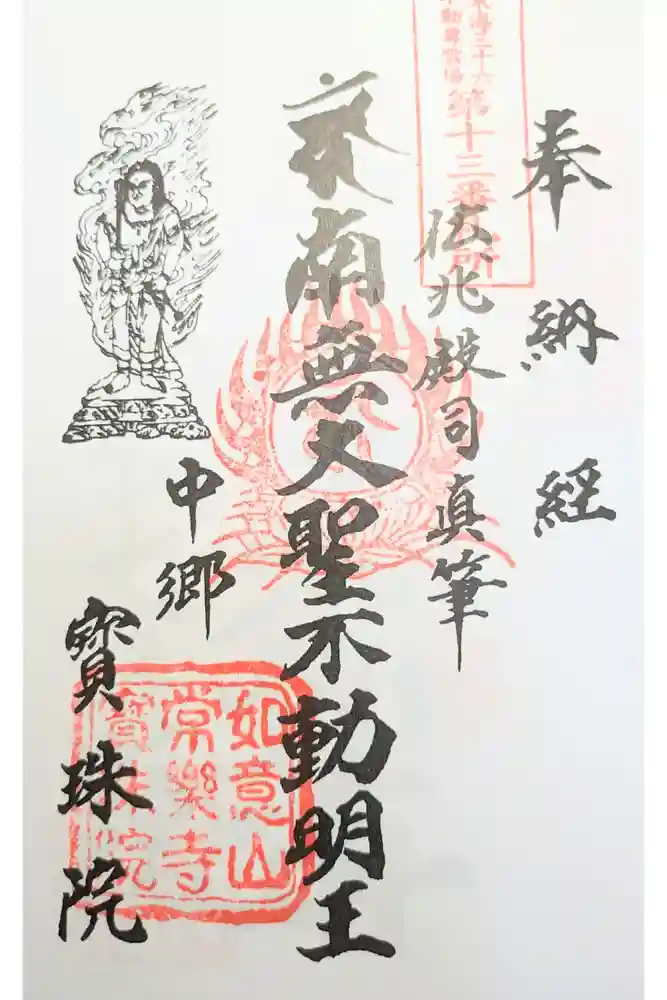 奉納経
第十三番札所
伝兆殿司真筆
南無大聖不動明王
中郷
寳珠院
如意山
常樂寺
寳珠院